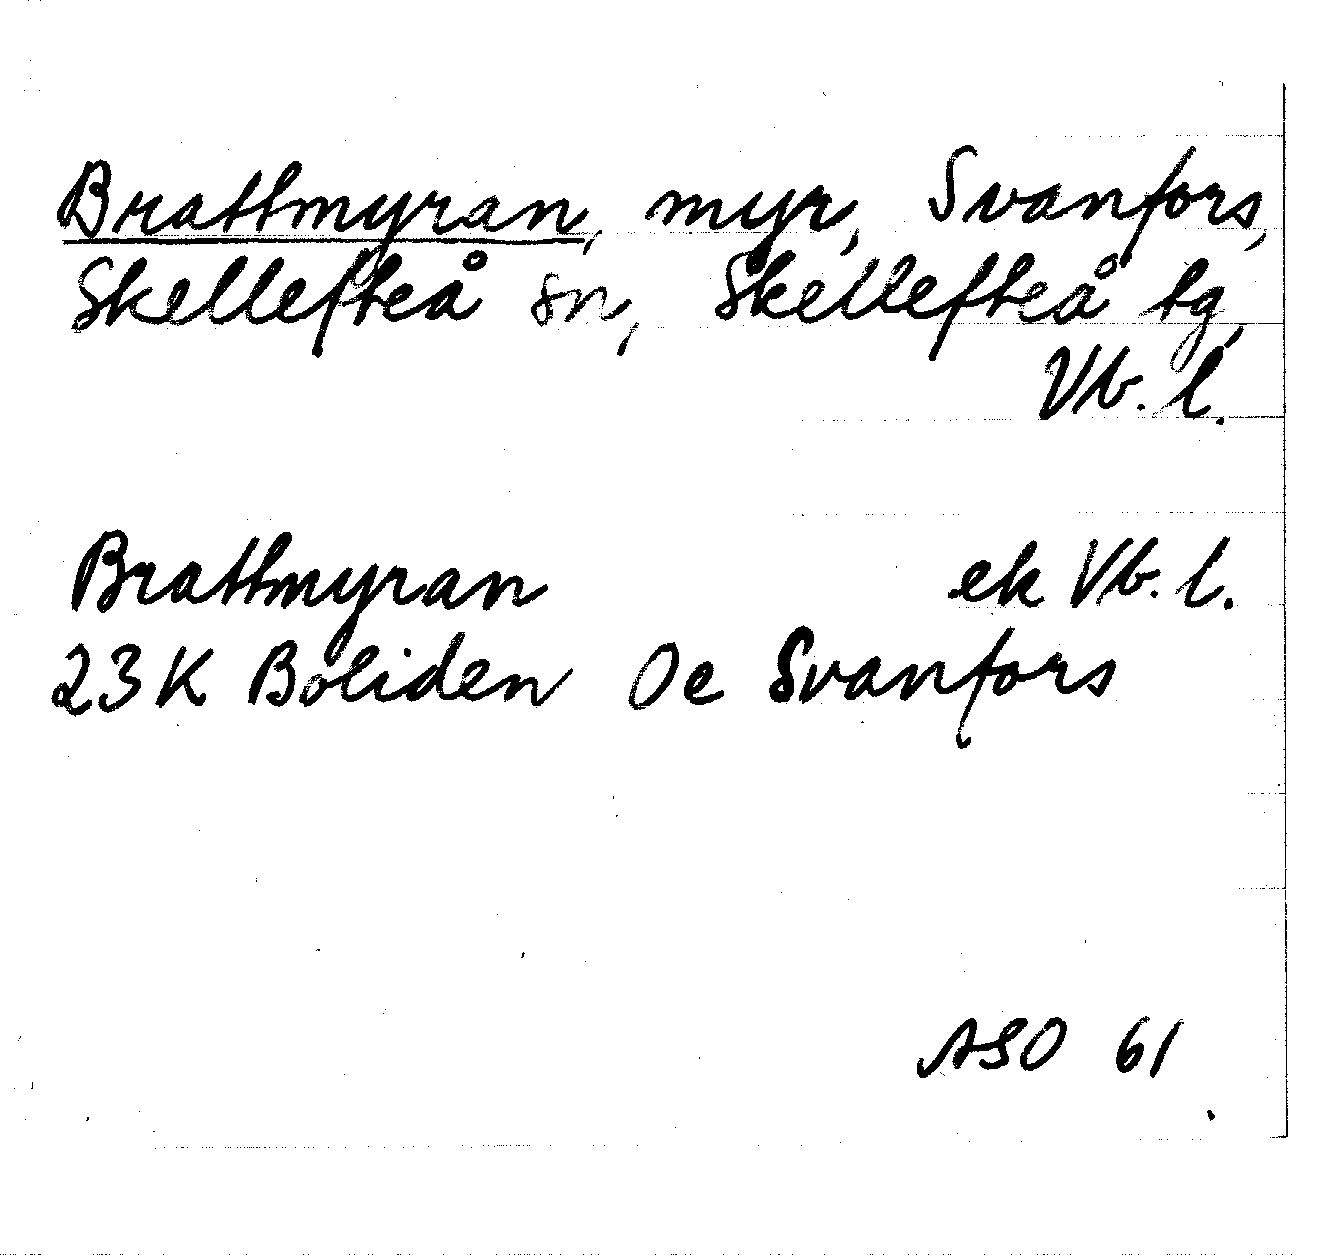 Brattmyran, myr, Svanfors,
Skellefteå sn, Skellefteå tg,
Vb. l.
Brattmyran ek Vb. l.
23K Boliden 0e Svanfors
ASO 61